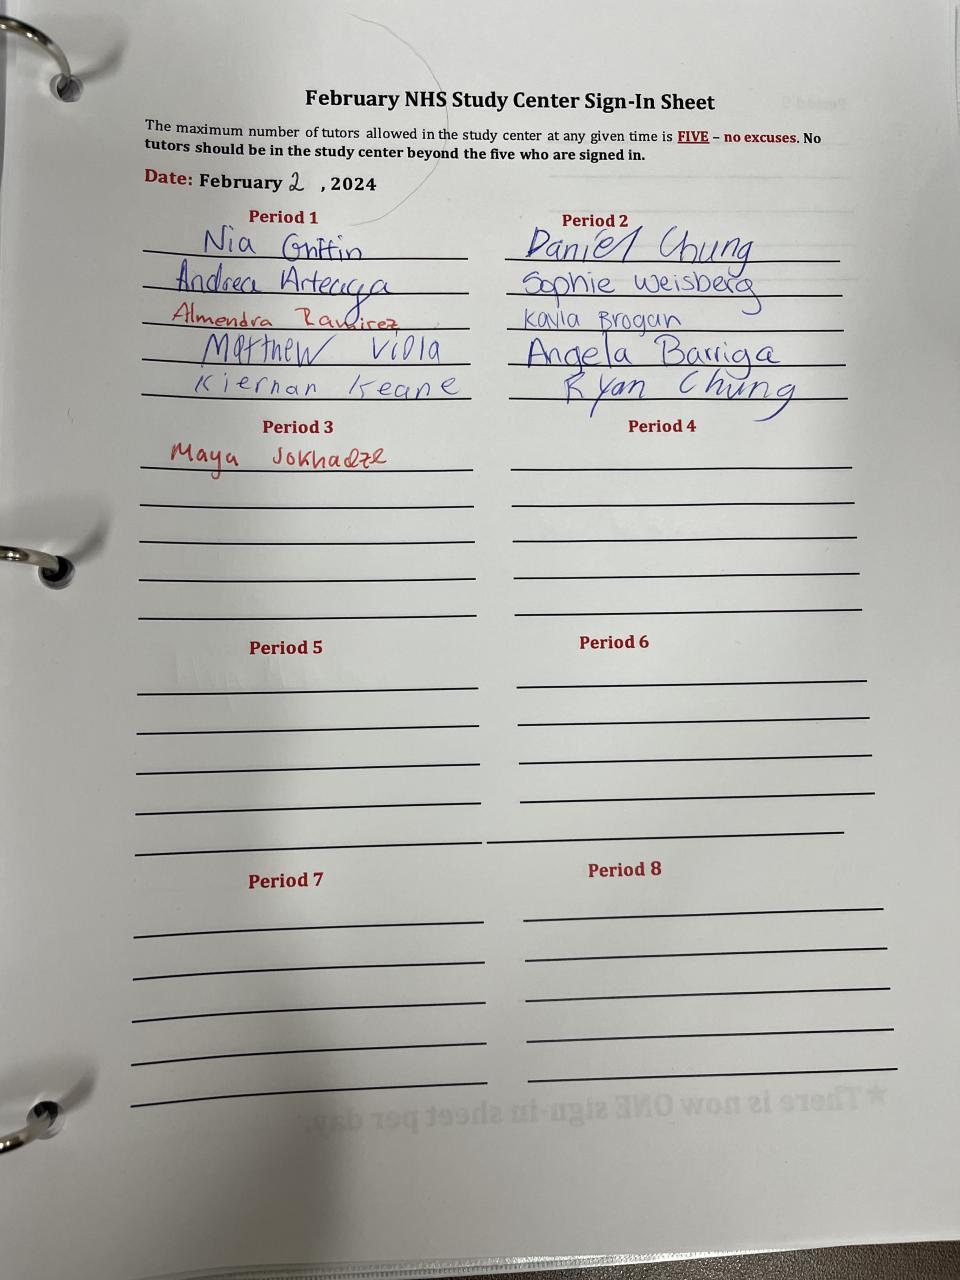 February NHS Study Center Sign-In Sheet
The maximum number of tutors allowed in the study center at any given time is FIVE – no excuses. No
tutors should be in the study center beyond the five who are signed in.
Date: February 2 , 2024
Period 1
Nia Griffin
Andrea Arteaga
Almendra Ramirez
Matthew Viola
Kiernan Keane
Period 2
Daniel Chung
Sophie Weisberg
Kayla Brogan
Angela Barriga
Ryan Chung
Period 3
Maya Jokhadze
Period 4
Period 5
Period 6
Period 7
Period 8
★There is now ONE sign-in sheet per day.